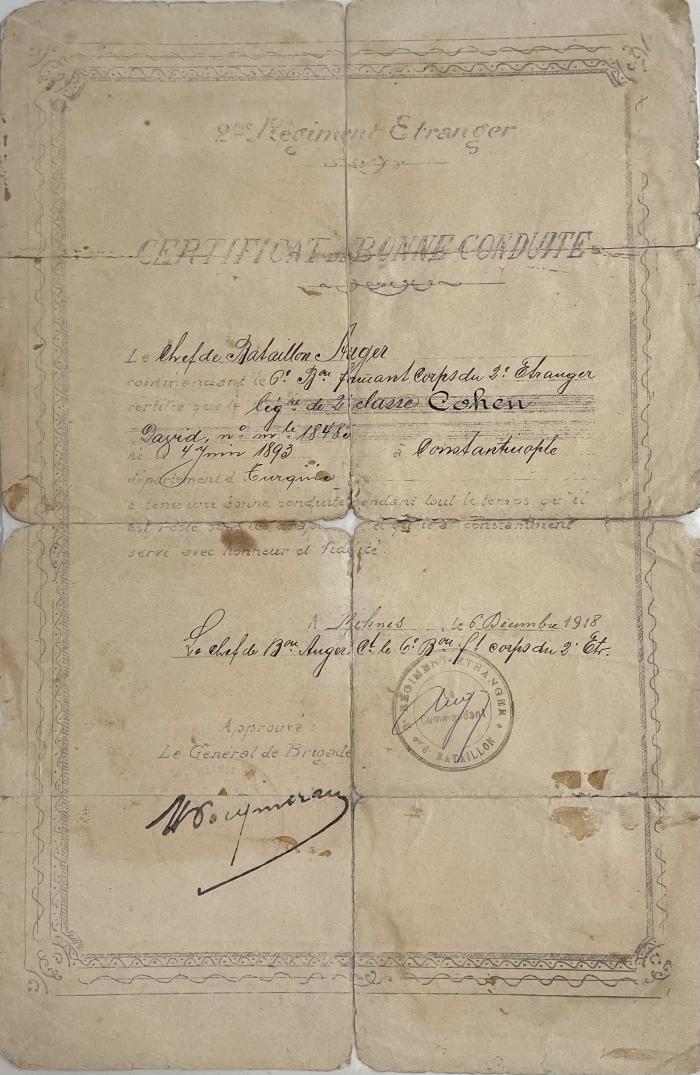 2me Régiment Etranger
CERTIFICAT de BONNE CONDUITE
Le Chef de Bataillon Auger
commandant le 6e Bon formant Corps du 2e Etranger
certifie que le légre de 2e classe Cohen
David, no mle 1848
né 4 Juin 1893 à Constantinople
département d Turquie
a tenu une bonne conduite pendant tout le temps qu'il
est resté et qu'il a constamment
servi avec honneur et fidélité.
A Meknès, le 6 Décembre 1918
Le Chef de Bon Auger Ct le 6e Bon ft corps du 2e Etr.
RÉGIMENT ETRANGER
Le
Commandant
6e BATAILLON
Approuvé :
Le Général de Brigade